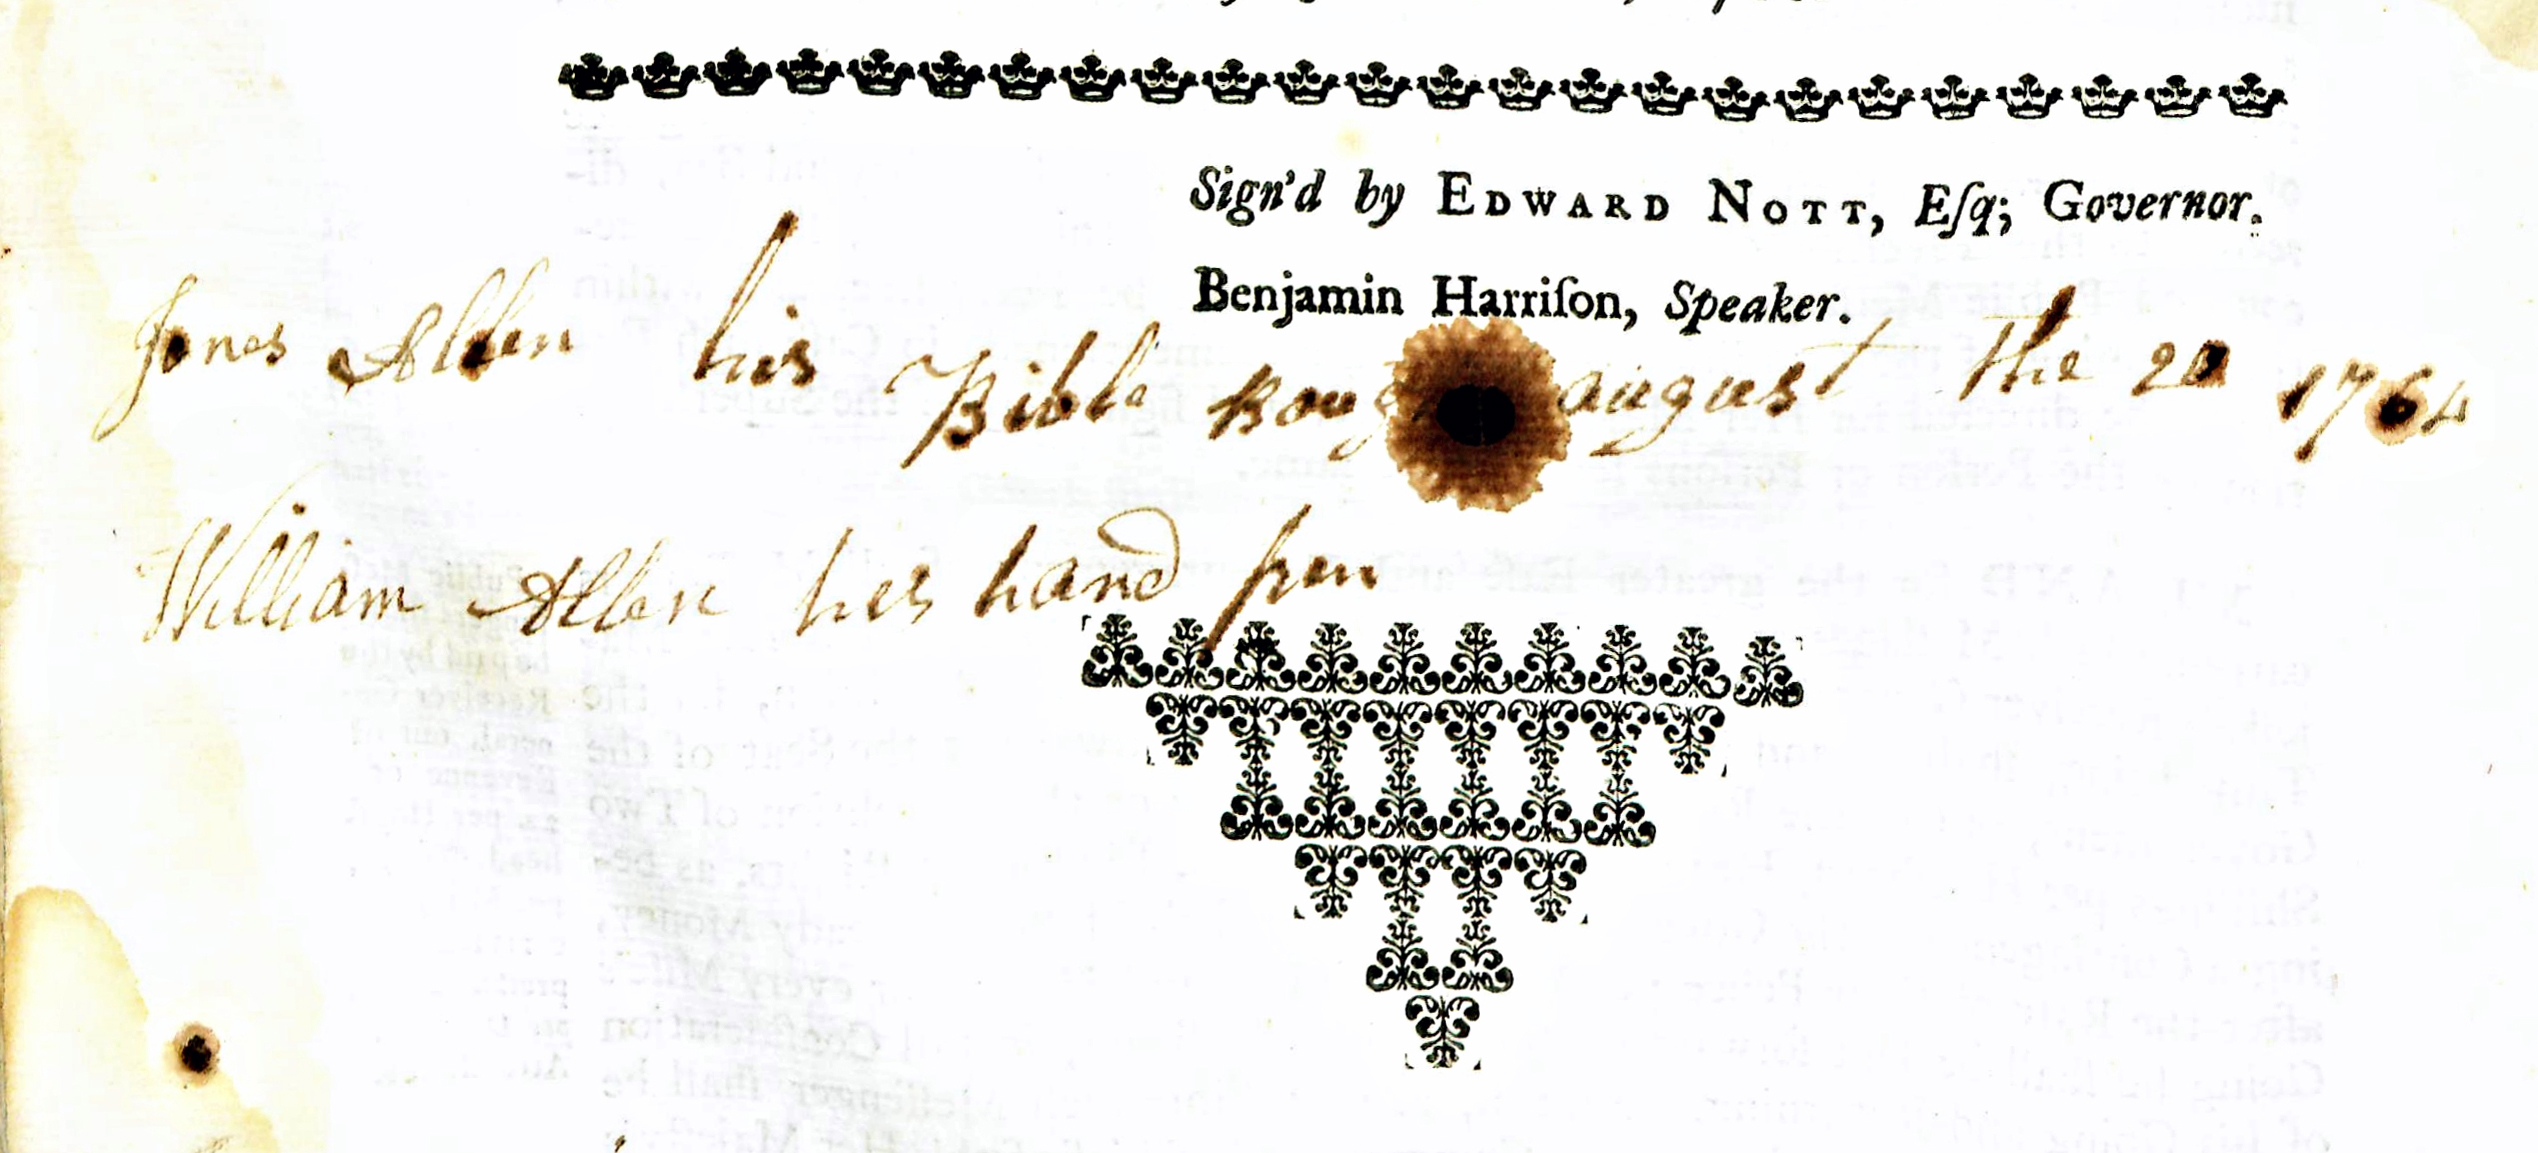 Sign'd by EDWARD NOTT, Eſq; Governor.
Benjamin Harriſon, Speaker.
Jones Allen his Bible august the 20 1764
William Allen his hand pen